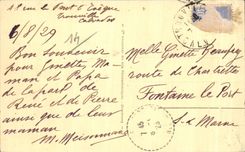 18 rue le Pont l'Evêque
Trouville
Calvados
6/8/29
Bon Souvenir
pour Ginette, Mo
man et Papa
de la part de
René et de Pierre
ainsi que de leur
maman
Melle Ginette
route de Chartrette
Fontaine le Port
S. et Marne